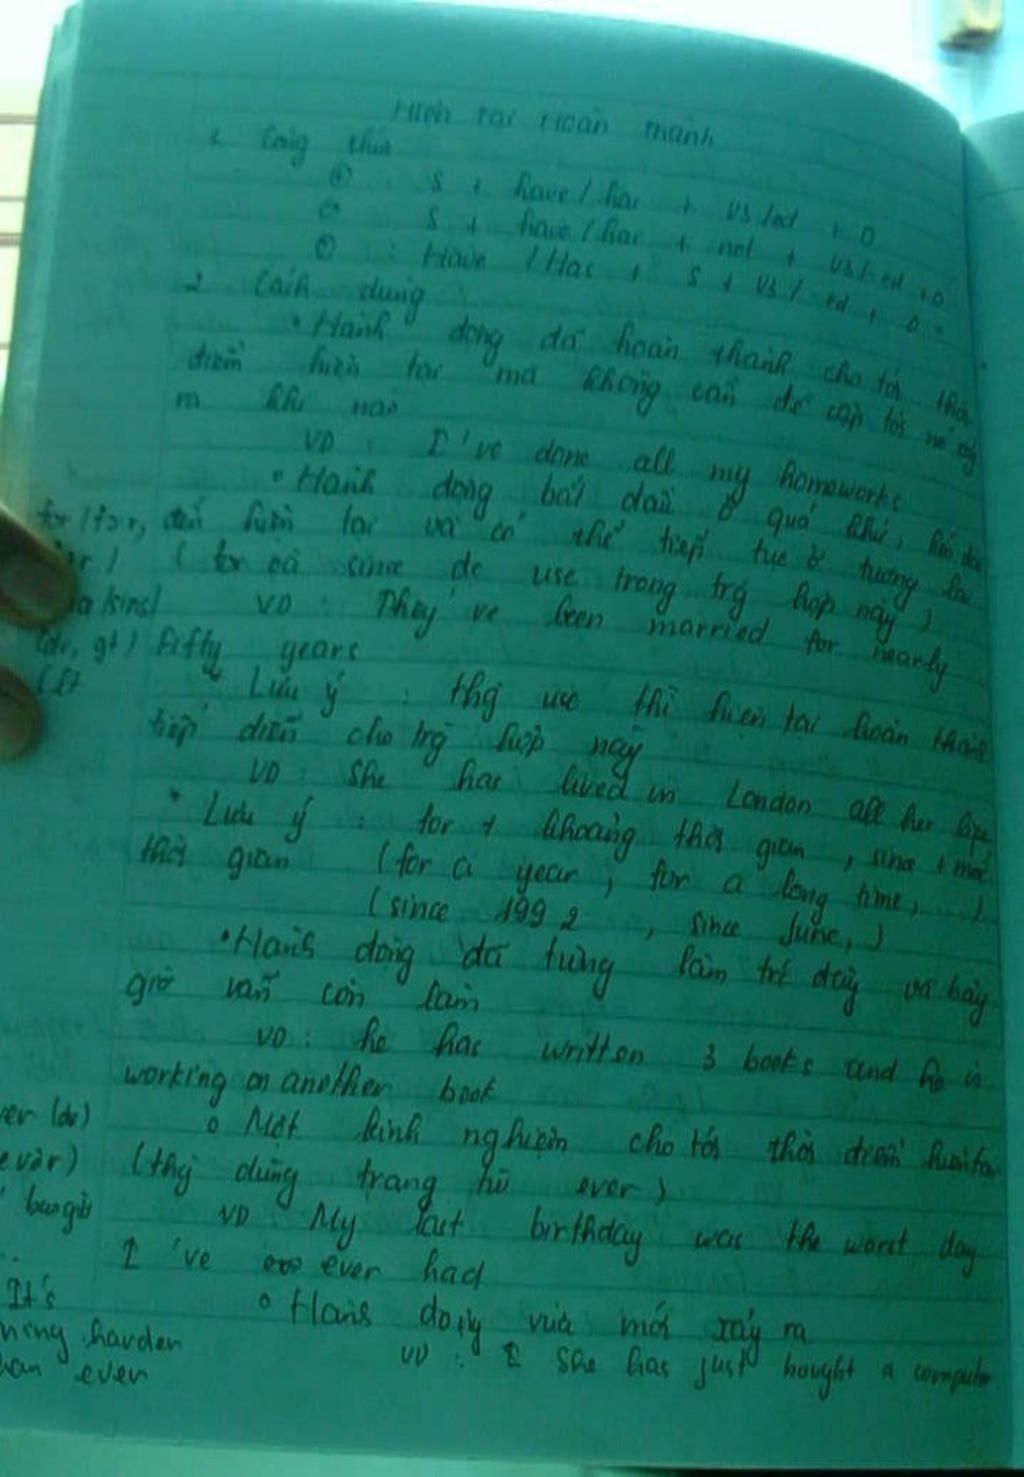 Hiện tại Hoàn thành
1. Công thức
⊕ : S + have / has + V3/ed + O
⊖ : S + have / has + not + V3/-ed + O
: Have / Has + S + V3 / -ed + O
2 Cách dùng
• Hành động đã hoàn thành cho tới thời
điểm hiện tại mà không cần đề cập tới nó xảy
ra khi nào
VD : I've done all my homeworks
• Hành động bắt đầu ở quá khứ, kéo dài
for /fɔ:r, đến hiện tại và có thể tiếp tục ở tương lai
( for và since đc use trong trg hợp này )
VD : They've been married for nearly
fifty years
Lưu ý : thg use thì hiện tại hoàn thành
tiếp diễn cho trg hợp này
VD : She has lived in London all her life
* Lưu ý : for + khoảng thời gian , since + mốc
thời gian ( for a year , for a long time, ... )
( since 1992 , since June, )
• Hành động đã từng làm trc đây và bây
giờ vẫn còn làm
VD : he has written 3 books and he is
working on another book
o Một kinh nghiệm cho tới thời điểm hiện tại
(thg dùng trạng từ ever )
VD : My last birthday was the worst day
I 've ever had
o Hành động vừa mới xảy ra
VD : She has just bought a computer
bao giờ
It's
harder
than ever